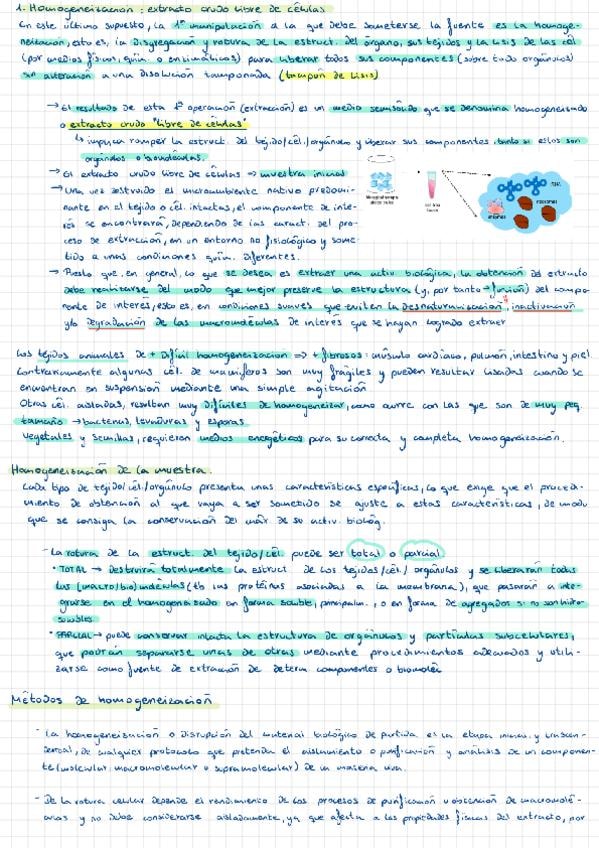 1. Homogeneización: extracto crudo libre de células
En este último supuesto, la 1ª manipulación a la que debe someterse la fuente es la homoge-
neización, esto es, la disgregación y rotura de la estruct. del órgano, sus tejidos y la lisis de las cél
(por medios físicos, quím. o enzimáticos) para liberar todos sus componentes (sobre todo orgánulos)
sin alteración a una disolución tamponada (tampón de lisis)
→ El resultado de esta 1ª operación (extracción) es un medio semisólido que se denomina homogeneizado
o extracto crudo "libre de células"
↳ implica romper la estruct. del tejido/cél./orgánulo y liberar sus componentes, tanto si estos son
orgánulos o biomoléculas.
→ El extracto crudo libre de células → muestra inicial
→ Una vez destruido el microambiente nativo predomi-
nante en el tejido o cél. intactas, el componente de inte-
rés se encontrará, dependiendo de las caract. del pro-
ceso de extracción, en un entorno no fisiológico y some-
tido a unas condiciones quím. diferentes.
→ Puesto que, en general, lo que se desea es extraer una activ biológica, la obtención del extracto
debe realizarse del modo que mejor preserve la estructura (y, por tanto → función) del compo-
nente de interés, esto es, en condiciones suaves que eviten la desnaturalización, inactivación
y/o degradación de las macromoléculas de interés que se hayan logrado extraer
Los tejidos animales de + difícil homogeneización => + fibrosos: músculo cardíaco, pulmón, intestino y piel
Contrariamente algunas cél. de mamíferos son muy frágiles y pueden resultar lisadas cuando se
encuentran en suspensión mediante una simple agitación
Otras cél. aisladas, resultan muy difíciles de homogeneizar, como ocurre con las que son de muy peq.
tamaño → bacterias, levaduras y esporas.
Vegetales y semillas, requieren medios energéticos para su correcta y completa homogeneización.
Homogeneización de la muestra.
Cada tipo de tejido/cél./orgánulo presenta unas características específicas, lo que exige que el procedi-
miento de obtención al que vaya a ser sometido se ajuste a estas características, de modo
que se consiga la conservación del máx de su activ. biológ.
- La rotura de la estruct. del tejido/cél. puede ser total o parcial
• TOTAL → Destruirá totalmente la estruct. de los tejidos/cél./orgánulos y se liberarán todas
las (macro/bio)moléculas (tb las proteínas asociadas a la membrana), que pasarán a inte-
grarse en el homogeneizado en forma soluble, principalm., o en forma de agregados si no son hidro-
solubles
• PARCIAL → puede conservar intacta la estructura de orgánulos y partículas subcelulares,
que podrán separarse unas de otras mediante procedimientos adecuados y utili-
zarse como fuente de extracción de determ componentes o biomoléc
Métodos de homogeneización
- La homogeneización o disrupción del material biológico de partida es la etapa inicial y trascen-
dental, de cualquier protocolo que pretenda el aislamiento o purificación y análisis de un componen-
te (molecular, macromolecular o supramolecular) de un material vivo.
- De la rotura celular depende el rendimiento de los procesos de purificación u obtención de macromolé-
culas y no debe considerarse aisladamente, ya que afecta a las propiedades físicas del extracto, por